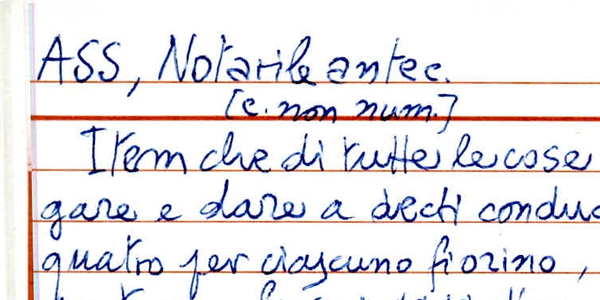 ASS, Notarile antec.
[c. non num.]
Item che di tutte le cose
gare e dare a decti conduc
quatro per ciascuno fiorino,